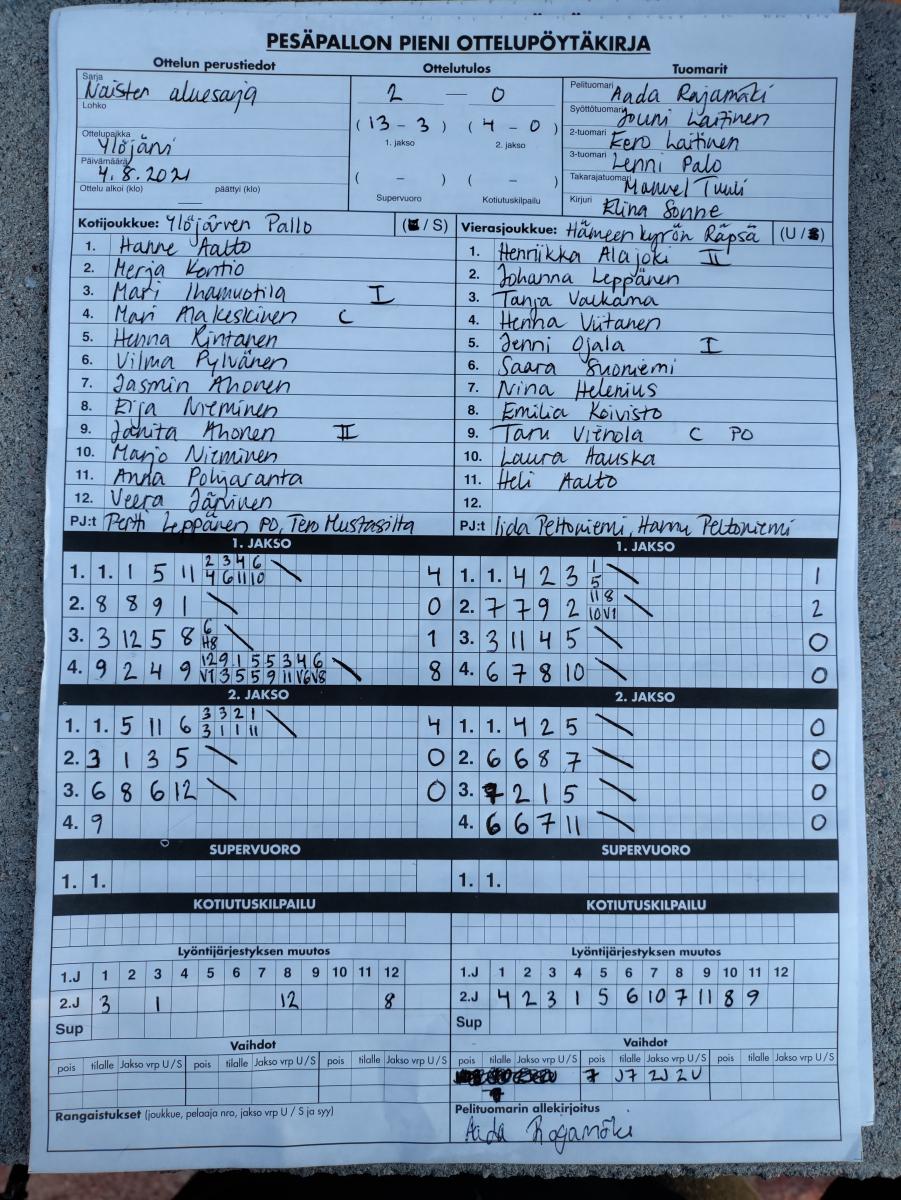 PESÄPALLON PIENI OTTELUPÖYTÄKIRJA
Ottelun perustiedot Ottelutulos Tuomarit
Sarja Naisten aluesarja
Lohko
Ottelupaikka Ylöjärvi
Päivämäärä 4.8.2021
Ottelu alkoi (klo) päättyi (klo)
2 — 0
(13 - 3) (4 - 0)
1. jakso 2. jakso
( - ) ( - )
Supervuoro Kotiutuskilpailu
Pelituomari Aada Rajamäki
Syöttötuomari Jouni Laitinen
2-tuomari Eero Laitinen
3-tuomari Lenni Palo
Takarajatuomari Manuel Tuuli
Kirjuri Elina Sonne
Kotijoukkue: Ylöjärven Pallo ( / S)
1. Hanne Aalto
2. Merja Kontio
3. Mari Ihamuotila I
4. Mari Alakeskinen C
5. Henna Rintanen
6. Vilma Pylvänen
7. Jasmin Ahonen
8. Eija Nieminen
9. Janita Ahonen II
10. Marjo Nieminen
11. Anna Pohjaranta
12. Veera Järvinen
PJ:t Pertti Leppänen PO, Tero Mustasilta
Vierasjoukkue: Hämeenkyrön Räpsä (U / )
1. Henriikka Alajoki II
2. Johanna Leppänen
3. Tanja Vaukama
4. Henna Viitanen
5. Jenni Ojala I
6. Saara Suoniemi
7. Nina Helenius
8. Emilia Koivisto
9. Taru Viehola C PO
10. Laura Hauska
11. Heli Aalto
12.
PJ:t Iida Peltoniemi, Hannu Peltoniemi
1. JAKSO
1. 1. 1 5 11 2 3 4 6 4
4 6 11 10
2. 8 8 9 1 0
3. 3 12 5 8 6 1
H8
4. 9 2 4 9 12 9 1 5 5 3 4 6 8
V7 3 5 5 9 11 V6 V8
1. JAKSO
1. 1. 4 2 3 1 1
5
2. 7 7 9 2 11 8 2
10 V1
3. 3 11 4 5 0
4. 6 7 8 10 0
2. JAKSO
1. 1. 5 11 6 3 3 2 1 4
3 1 1 11
2. 3 1 3 5 0
3. 6 8 6 12 0
4. 9
2. JAKSO
1. 1. 4 2 5 0
2. 6 6 8 7 0
3. 7 2 1 5 0
4. 6 6 7 11 0
SUPERVUORO SUPERVUORO
1. 1. 1. 1.
KOTIUTUSKILPAILU KOTIUTUSKILPAILU
Lyöntijärjestyksen muutos
1.J 1 2 3 4 5 6 7 8 9 10 11 12
2.J 3 1 12 8
Sup
Lyöntijärjestyksen muutos
1.J 1 2 3 4 5 6 7 8 9 10 11 12
2.J 4 2 3 1 5 6 10 7 11 8 9
Sup
Vaihdot
pois tilalle Jakso vrp U/S pois tilalle Jakso vrp U/S pois tilalle Jakso vrp U/S
Vaihdot
pois tilalle Jakso vrp U/S pois tilalle Jakso vrp U/S pois tilalle Jakso vrp U/S
7 J7 2J 2U
Rangaistukset (joukkue, pelaaja nro, jakso vrp U / S ja syy)
Pelituomarin allekirjoitus
Aada Rajamäki